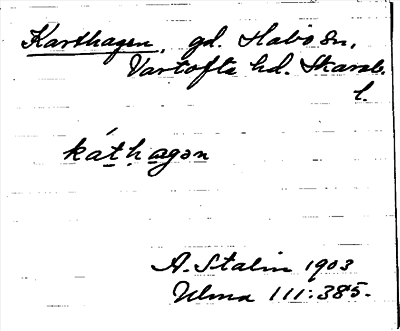 Karthagen, gd. Habo sn,
Vartofta hd. Skarab.
l.
kát̲h̲agən
A. Stalin 1903
Ulma 111:385.